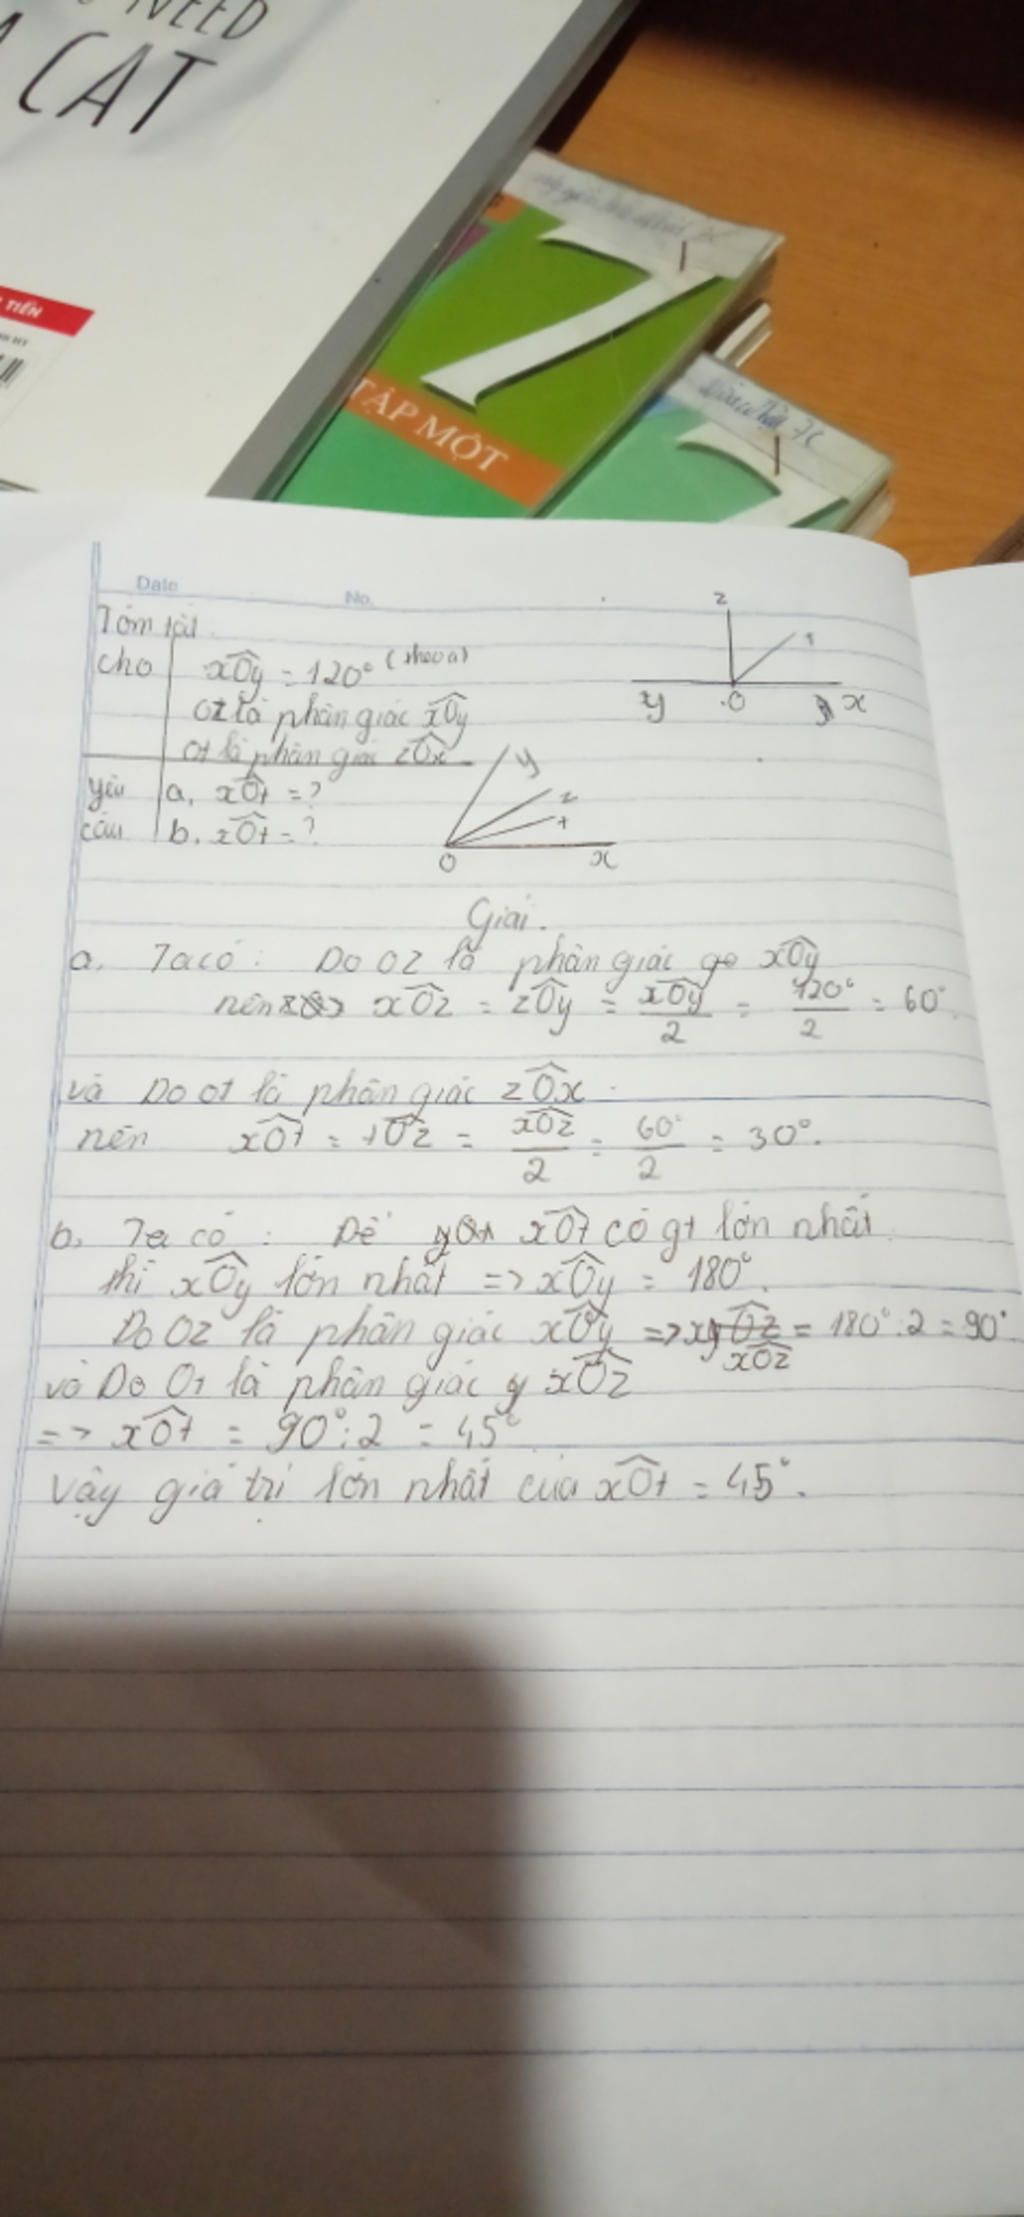 NEED
A CAT
TIẾN
7
TẬP MỘT
7C
Date
No.
Tóm tắt
cho xOy = 120° (theo a)
Oz là phân giác xOy
Ot là phân giác zOx
yêu a, xOt = ?
cầu b. xOt = ?
z
t
y O x
y
z
t
O x
Giải.
a. Ta có: Do Oz là phân giác xOy
nên xOz = zOy = xOy/2 = 120°/2 = 60°.
và Do Ot là phân giác zOx
nên xOt = tOz = xOz/2 = 60°/2 = 30°.
b. Ta có: Để xOt có gt lớn nhất
thì xOy lớn nhất => xOy = 180°.
Do Oz là phân giác xOy => xOz = 180°:2 = 90°
và Do Ot là phân giác xOz
=> xOt = 90°:2 = 45°
Vậy giá trị lớn nhất của xOt = 45°.